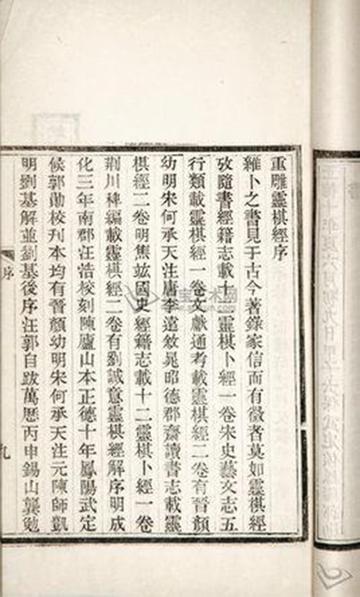 重雕靈棋經序
雜卜之書見于古今著錄家信而有徵者莫如靈棋經
攷隨書經籍志載十二靈棋卜經一卷宋史藝文志五
行類載靈棋經一卷文獻通考載靈棋經二卷有晉顏
幼明宋何承天注唐李遠敘晁昭德郡齋讀書志載靈
棋經二卷明焦竑國史經籍志載十二靈棋卜經一卷
荆川稗編載靈棋經二卷有劉誠意靈棋經解序明成
化三年南郡汪浩校刻陳廬山本正德十年鳳陽武定
候郭勛校刊本均有晉顏幼明宋何承天注元陳師凱
明劉基解並劉基後序汪郭自跋萬歷丙申錫山龔勉
序
九